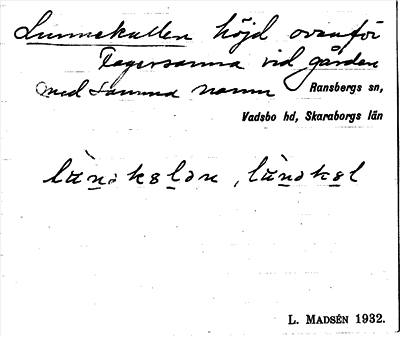 Lunnekullen höjd ovanför
Fagersanna vid gården
med samma namn Ransbergs sn,
Vadsbo hd, Skaraborgs län
L. MADSÉN 1932.